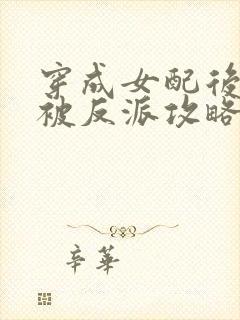 穿成女配後
被反派攻略
辛華